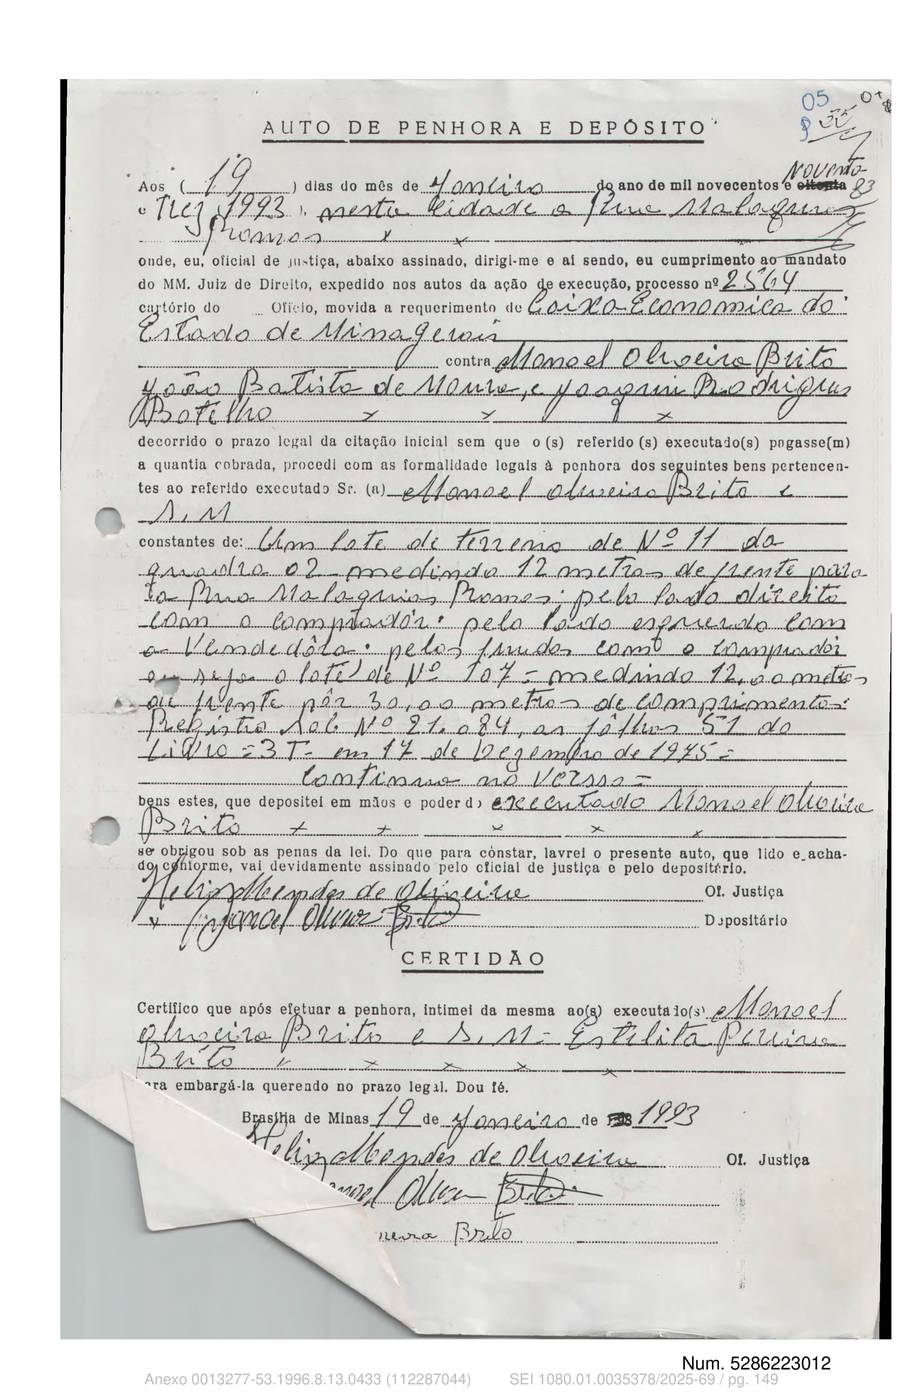 05
AUTO DE PENHORA E DEPÓSITO
Noventa
Aos ( 19 ) dias do mês de Janeiro do ano de mil novecentos e oitenta
e Trez, 1993 ), nesta Cidade a Rua Malaquias
Ramos x x
onde, eu, oficial de justiça, abaixo assinado, dirigi-me e aí sendo, eu cumprimento ao mandato
do MM. Juiz de Direito, expedido nos autos da ação de execução, processo nº 2564
cartório do Ofício, movida a requerimento de Caixa Economica do
Estado de Minas Gerais
contra Manoel Oliveira Brito
João Batista de Moura, e Joaquim Rodrigues
Botelho x x x
decorrido o prazo legal da citação inicial sem que o (s) referido (s) executado(s) pagasse(m)
a quantia cobrada, procedi com as formalidade legais à penhora dos seguintes bens pertencen-
tes ao referido executado Sr. (a) Manoel Oliveira Brito e
S. M
constantes de: Um lote de terreno de Nº 11 da
quadra 02 medindo 12 metros de frente para
a Rua Malaquias Ramos: pelo lado direito
com o comprador: pelo lado esquerdo com
a Vendedôra: pelos fundos com o comprador
ou seja o lote de Nº 107 = medindo 12,00 metros
de frente pôr 30,00 metros de comprimentos:
Registro sob Nº 21.084, as fôlhas 51 do
Livro = 3 T- em 17 de Dezembro de 1975 =
Continua no Verso =
bens estes, que depositei em mãos e poder do executado Manoel Oliveira
Brito x x x x x
se obrigou sob as penas da lei. Do que para constar, lavrei o presente auto, que lido e acha-
do conforme, vai devidamente assinado pelo oficial de justiça e pelo depositário.
Helio Mendes de Oliveira Of. Justiça
x Manoel Oliveira Brito Depositário
CERTIDÃO
Certifico que após efetuar a penhora, intimei da mesma ao(s) executado(s) Manoel
Oliveira Brito e S. M = Estelita Pereira
Brito x x x x
ara embargá-la querendo no prazo legal. Dou fé.
Brasília de Minas 19 de Janeiro de 1993
Helio Mendes de Oliveira Of. Justiça
anoel Oliveira Brito
reira Brito
Num. 5286223012
Anexo 0013277-53.1996.8.13.0433 (112287044) SEI 1080.01.0035378/2025-69 / pg. 149